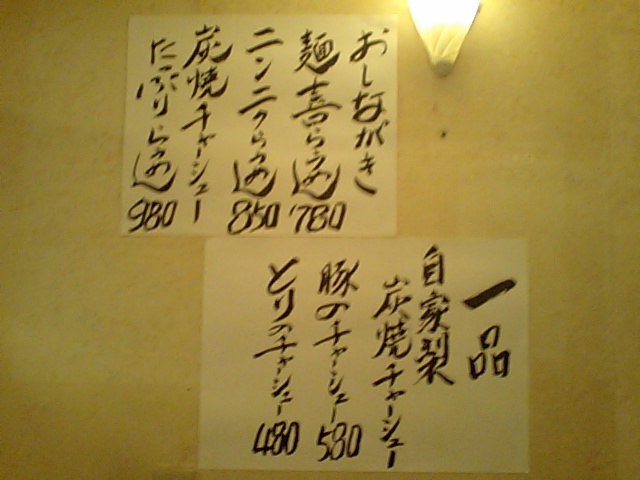 おしながき
麺喜らぅめん 780
ニンニクらぅめん 850
炭焼チャーシュー
たっぷりらぅめん 980
一品
自家製
炭焼チャーシュー
豚のチャーシュー 580
とりのチャーシュー 480